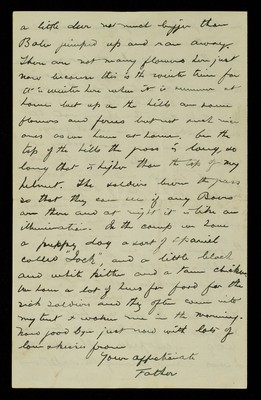 a little deer not much bigger than
Baby jumped up and ran away.
There are not many flowers here just
now because this is the winter time for
it is winter here when it is summer at
home but up on the hills are some
flowers and ferns but not such nice
ones as we have at home. On the
top of the hills the grass is long, so
long that is higher than the top of my
helmet. The soldiers burn the grass
so that they can see if any Boers
are there and at night it is like an
illumination. In the camp we have
a puppy dog a sort of spaniel
called "Jock", and a little black
and white kitten and a tame chicken
We have a lot of hens for food for the
sick soldiers and they often come into
my tent & waken me in the morning.
Now good bye just now with lots of
love & kisses from
Your affectionate
Father